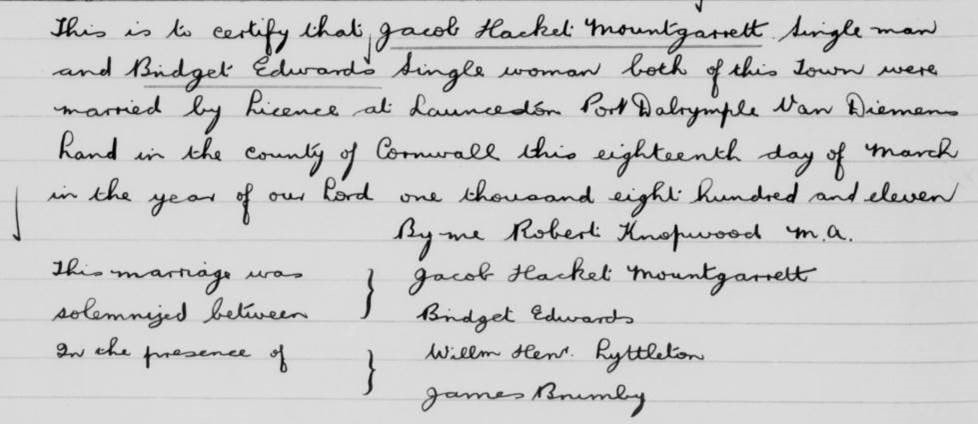 This is to certify that Jacob Hacket Mountgarrett Single man
and Bridget Edwards Single woman both of this Town were
married by Licence at Launceston Port Dalrymple Van Diemens
Land in the county of Cornwall this eighteenth day of March
in the year of our Lord one thousand eight hundred and eleven
By me Robert Knopwood M.A.
This marriage was } Jacob Hacket Mountgarrett
solemnized between Bridget Edwards
In the presence of } Willm Henr. Lyttleton
James Brumby